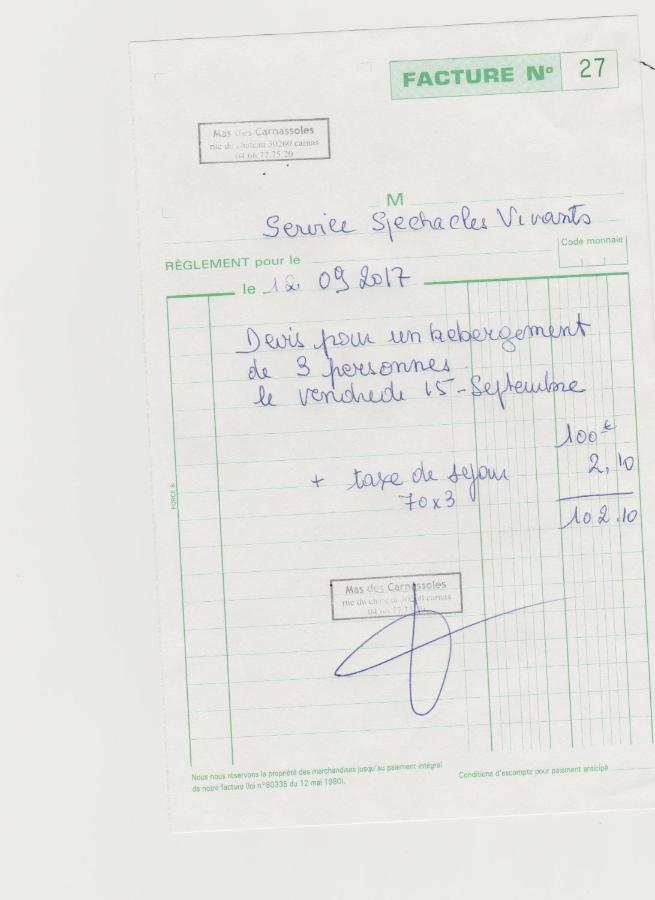 FACTURE Nº 27
Mas des Carnassoles
rue du chateau 30260 carnas
04 66 77 75 20
M
Service Spectacles Vivants
Code monnaie
RÈGLEMENT pour le
le 12 09 2017
Devis pour un hebergement
de 3 personnes
le vendredi 15 - Septembre
100€
+ taxe de sejour 2,10
70 x 3
102.10
FORCE 8
Mas des Carnassoles
rue du chateau 30260 carnas
04 66 77 75 20
Nous nous réservons la propriété des marchandises jusqu'au paiement intégral
de notre facture (loi n°80335 du 12 mai 1980).
Conditions d'escompte pour paiement anticipé